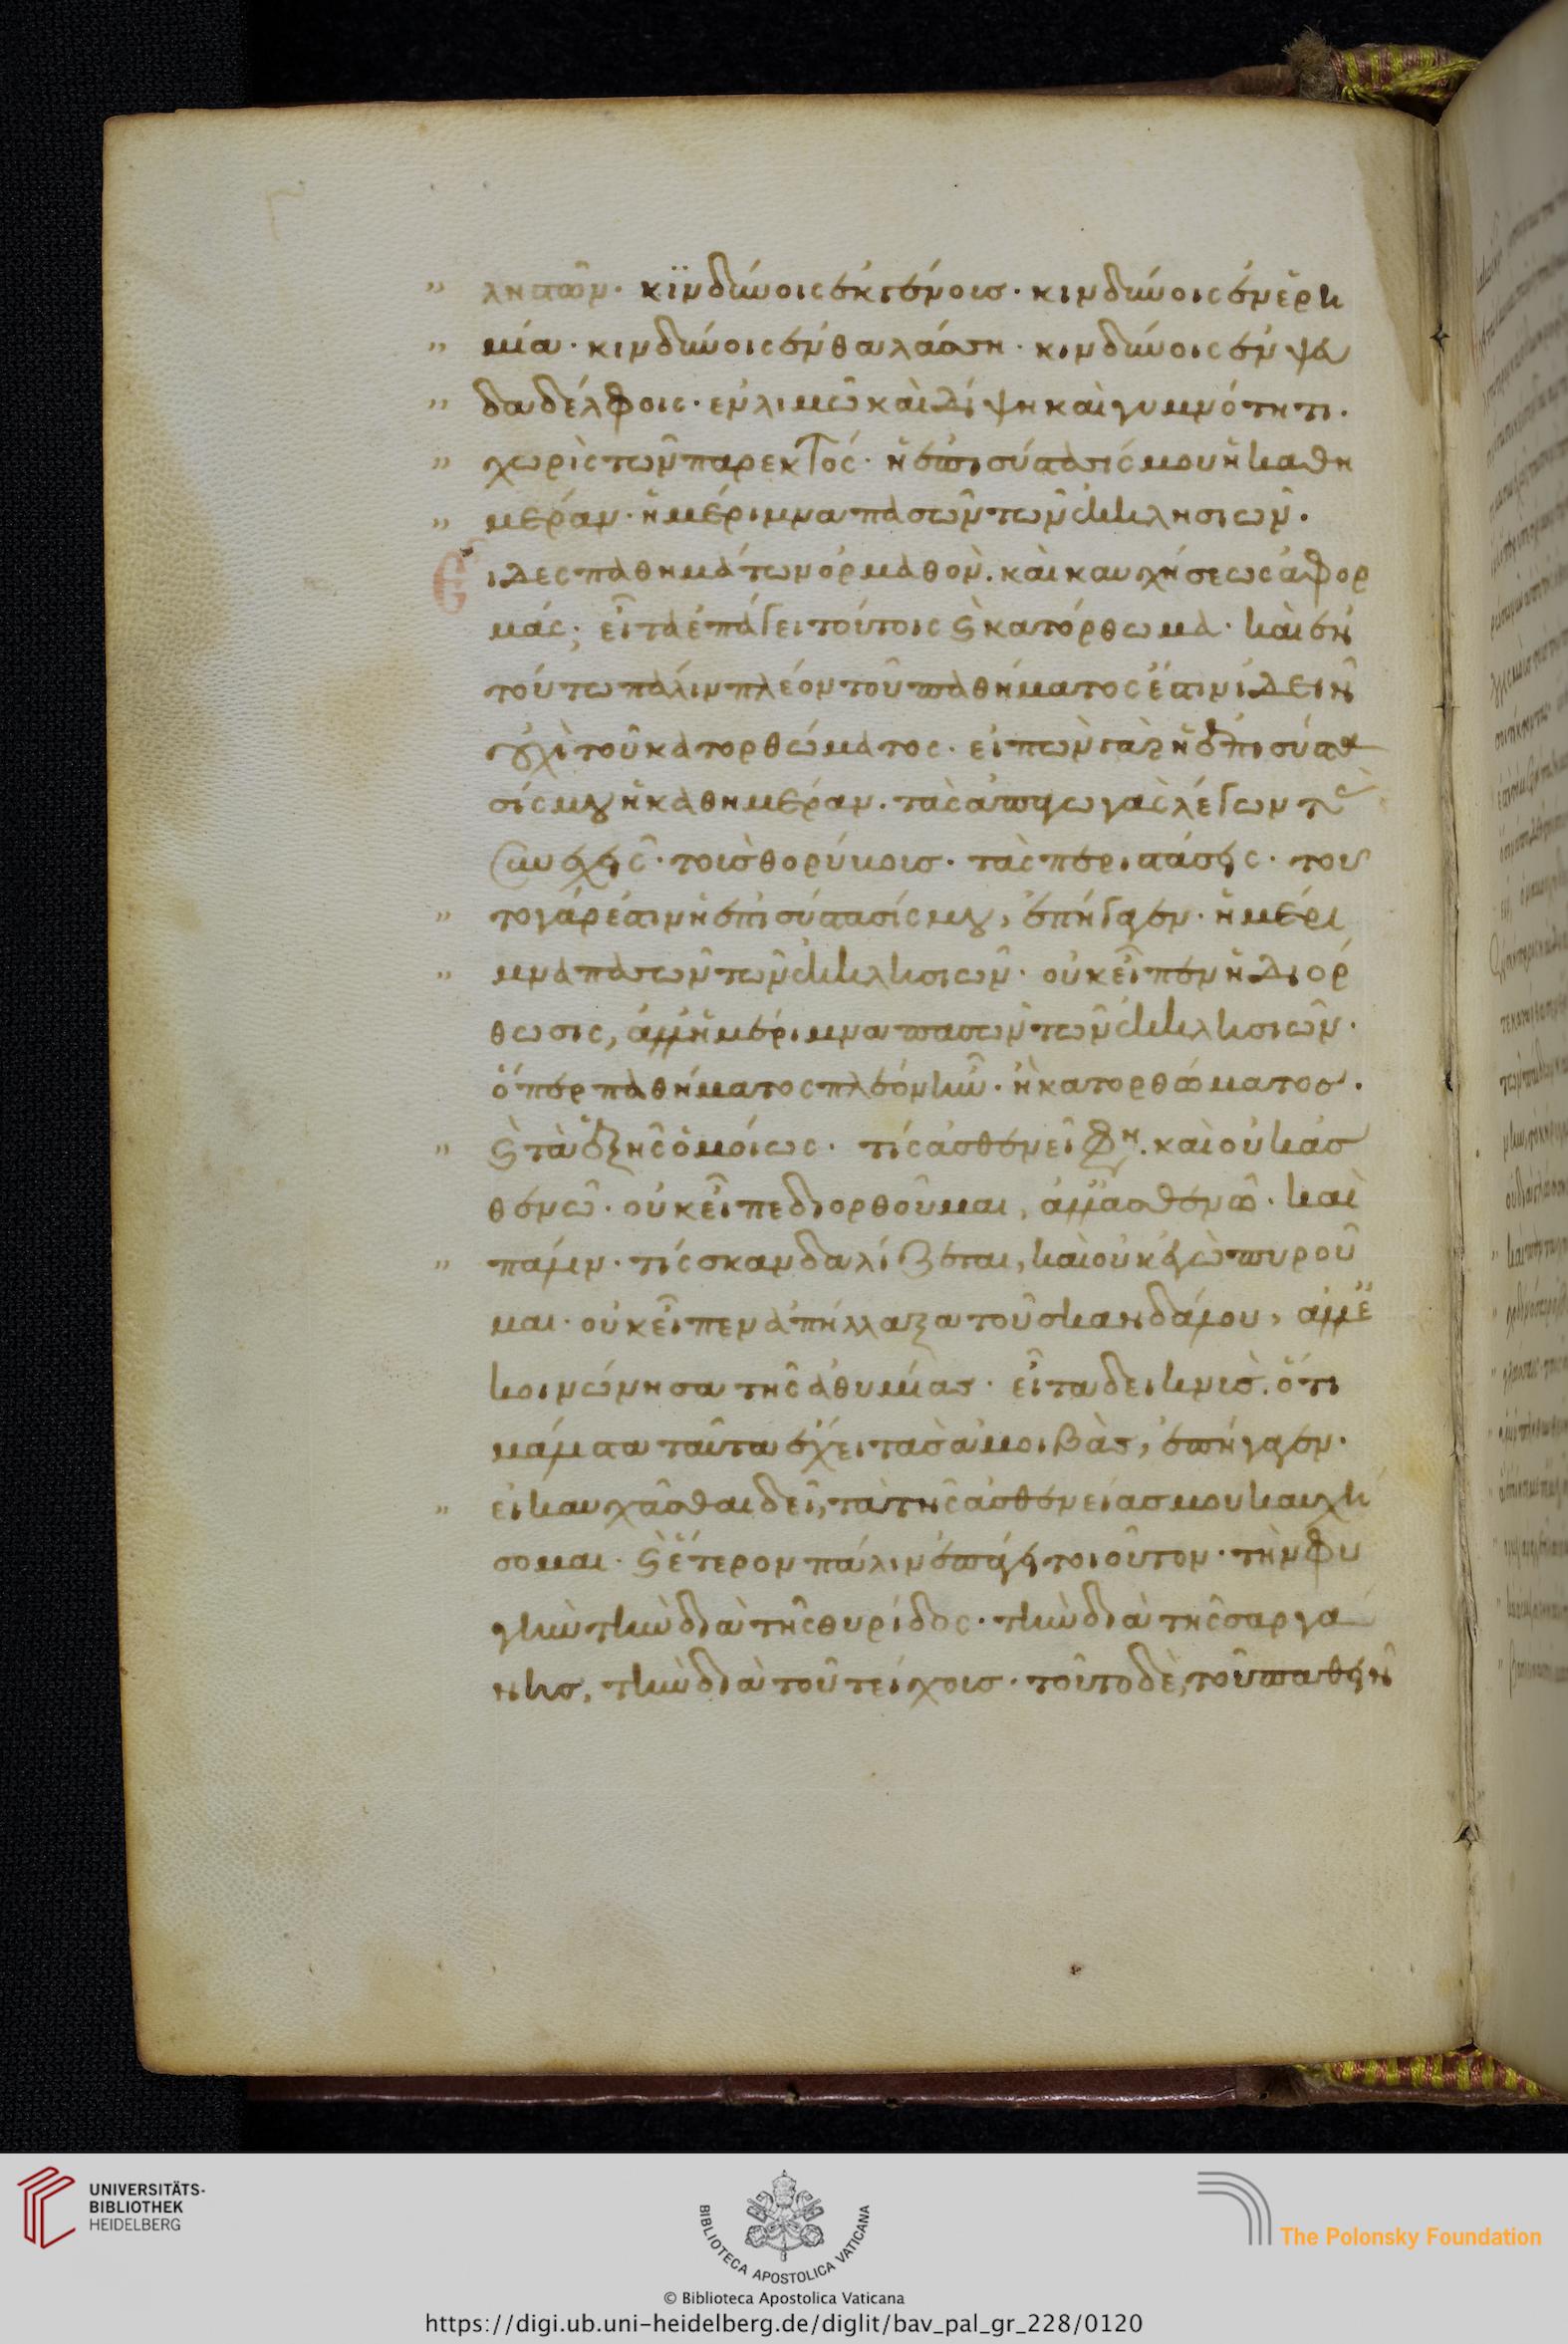 " ληστῶν· κϊνδύνοις ἐκ γένοις· κινδύνοις ἐν ἐρη
" μία· κινδύνοις ἐν θαλάσση· κινδύνοις ἐν ψευ
" δαδέλφοις· εν λιμῶ καὶ δίψη καὶ γυμνότητι.
" χωρὶς τῶν παρεκτός· ἡ ἐπισύστασίς μου ἡ καθη
" μεράν· ἡ μέριμνα πασῶν τῶν ἐκκλησιῶν.
Εἶδες παθημάτων ὁρμαθὸν. καὶ καυχήσεως ἀφορ
μάς; εἶτα ἐπάγει τούτοις ϗ κατόρθωμα· καὶ ἐν
τούτω πάλιν πλέον τοῦ παθήματος ἔστιν ἰδεῖν
οὐχὶ τοῦ κατορθώματος· εἰπὼν γὰρ ἡ ἐπισύστα
σίς μου ἡ καθημεράν. τὰς ἀπαγωγὰς λέγων τὰς
συνεχεῖς· τοὺς θορύβους· τὰς περιστάσεις· τοῦ
" το γάρ ἐστιν ἡ ἐπισύστασίς μου, ἐπήγαγεν· ἡ μέρι
" μνα πασῶν τῶν ἐκκλησιῶν· οὐκ εἶπεν ἡ διόρ
θωσις, ἀλλ' ἡ μέριμνα πασῶν τῶν ἐκκλησιῶν·
ὅπερ παθήματος πλέον ἦν· ἢ κατορθώματος.
" ϗ τὰ ἑξῆς ὁμοίως· τίς ἀσθενεῖ φη. καὶ οὐκ ἀσ
θενῶ· οὐκ εἶπε διορθοῦμαι, ἀλλ' ἀσθενῶ· καὶ
" πάλιν· τίς σκανδαλίζεται, καὶ οὐκ ἐγὼ πυροῦ
μαι· οὐκ εἶπεν ἀπήλλαξα τοῦ σκανδάλου, ἀλλ' ἐ
κοινώνησα τῆς ἀθυμίας· εἶτα δεικνὺς. ὅτι
μάλιστα ταῦτα ἔχει τὰς ἀμοιβὰς, ἐπήγαγεν·
" εἰ καυχᾶσθαι δεῖ, τὰ τῆς ἀσθενείας μου καυχή
σομαι· ϗ ἕτερον πάλιν ἐπάγει τοιοῦτον· τὴν φυ
γὴν τὴν διὰ τῆς θυρίδος· τὴν διὰ τῆς σαργά
νης, τὴν διὰ τοῦ τείχους· τοῦτο δὲ, τοῦ παθεῖν
UNIVERSITÄTS-
BIBLIOTHEK
HEIDELBERG
BIBLIOTECA APOSTOLICA VATICANA
The Polonsky Foundation
© Biblioteca Apostolica Vaticana
https://digi.ub.uni-heidelberg.de/diglit/bav_pal_gr_228/0120